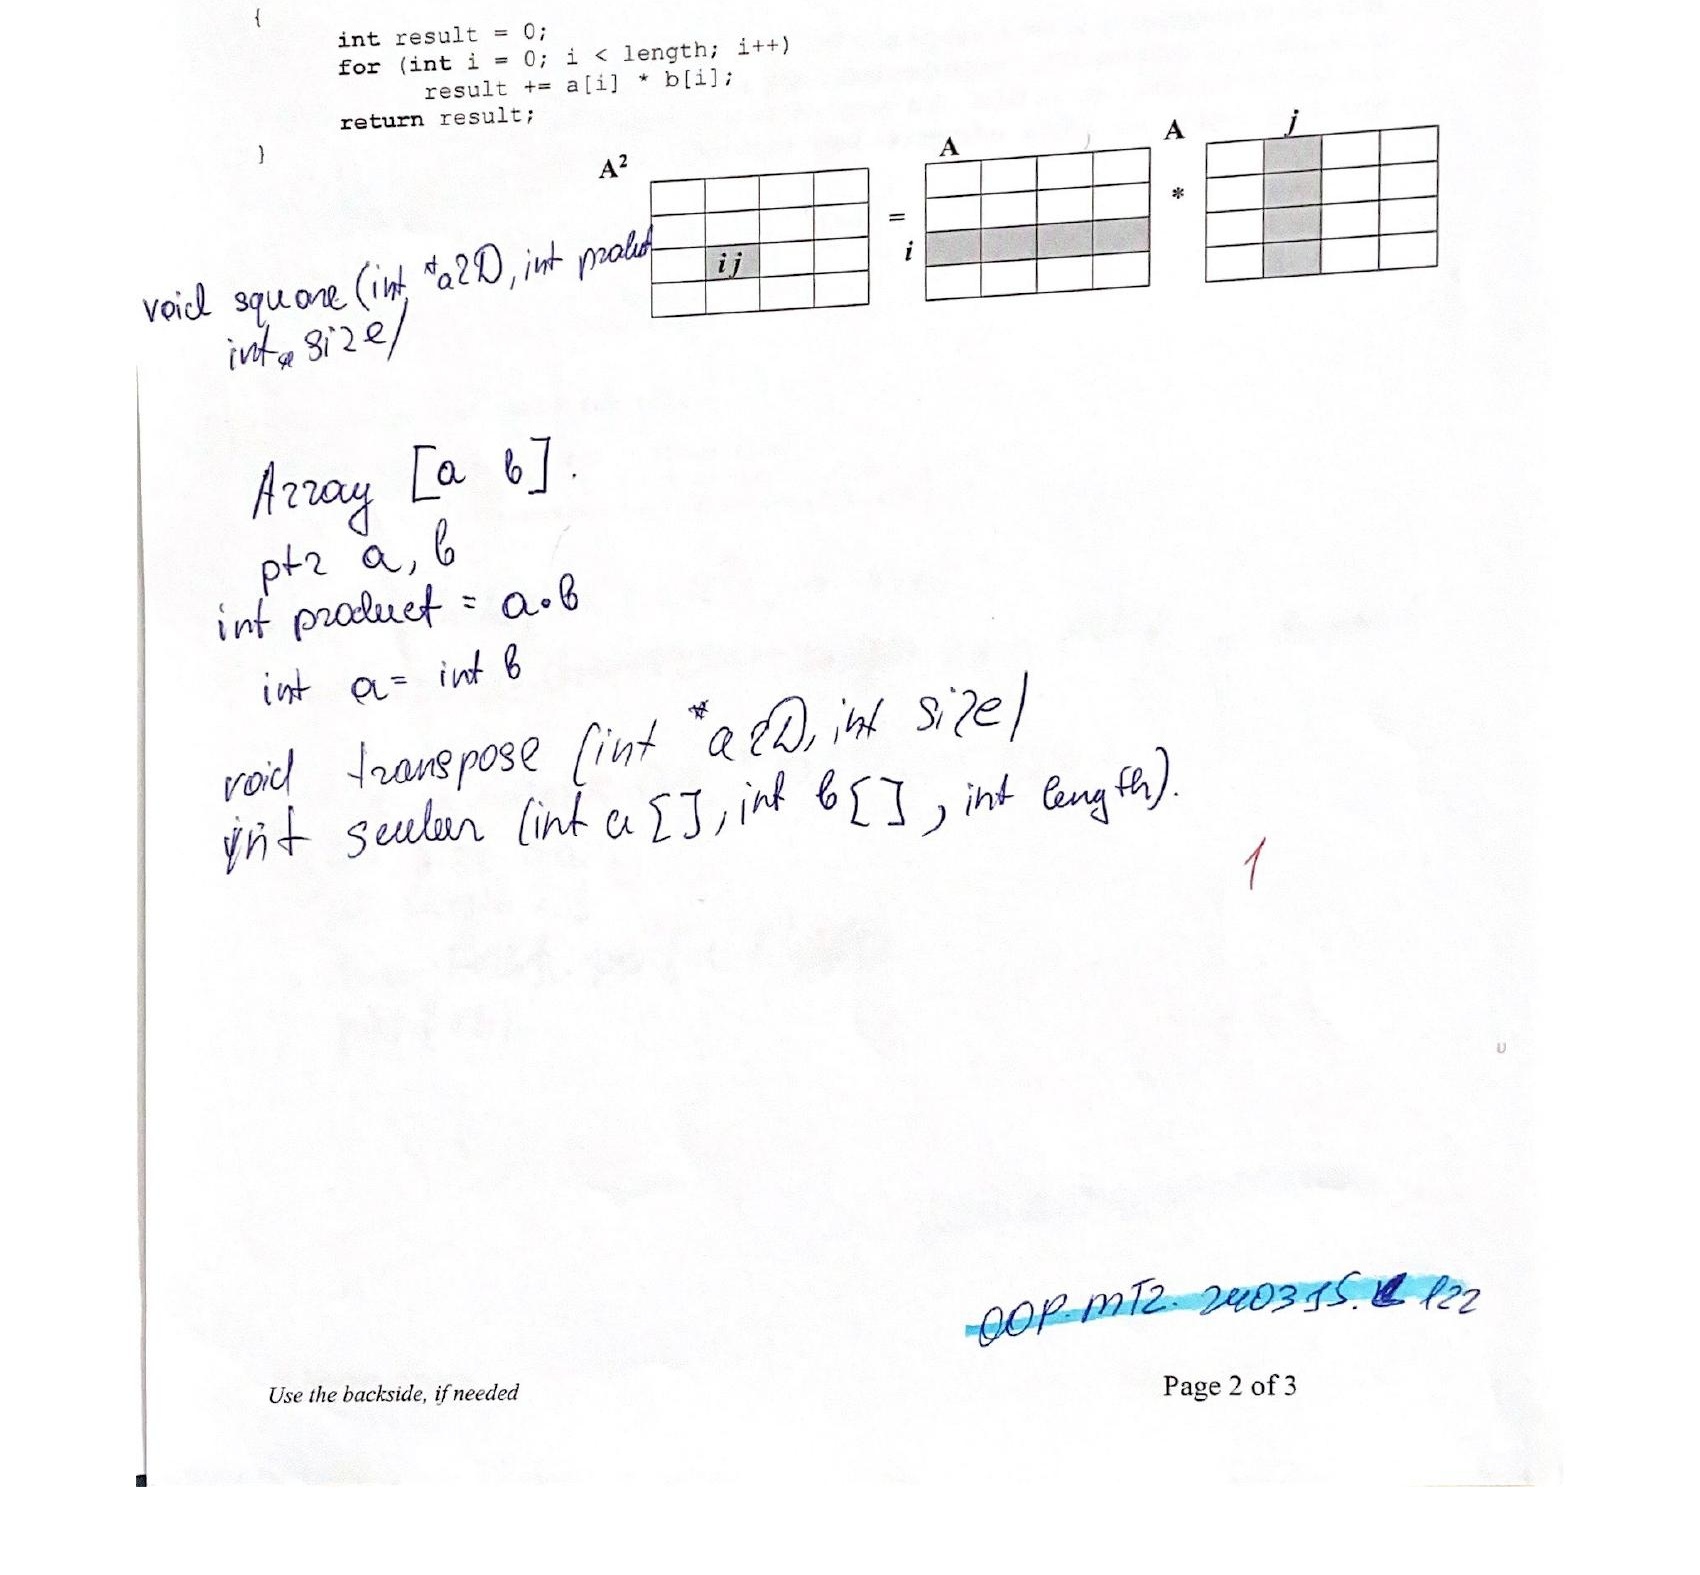 {
int result = 0;
for (int i = 0; i < length; i++)
result += a[i] * b[i];
return result;
}
A²
=
A
i
*
A
j
ij
void square (int *a2D, int product
int size)
Array [a b].
ptr a, b
int product = a·b
int a = int b
void transpose (int *a2D, int size)
int scular (int a [], int b [], int length).
1
OOP.MT2. 240315. 122
Use the backside, if needed
Page 2 of 3